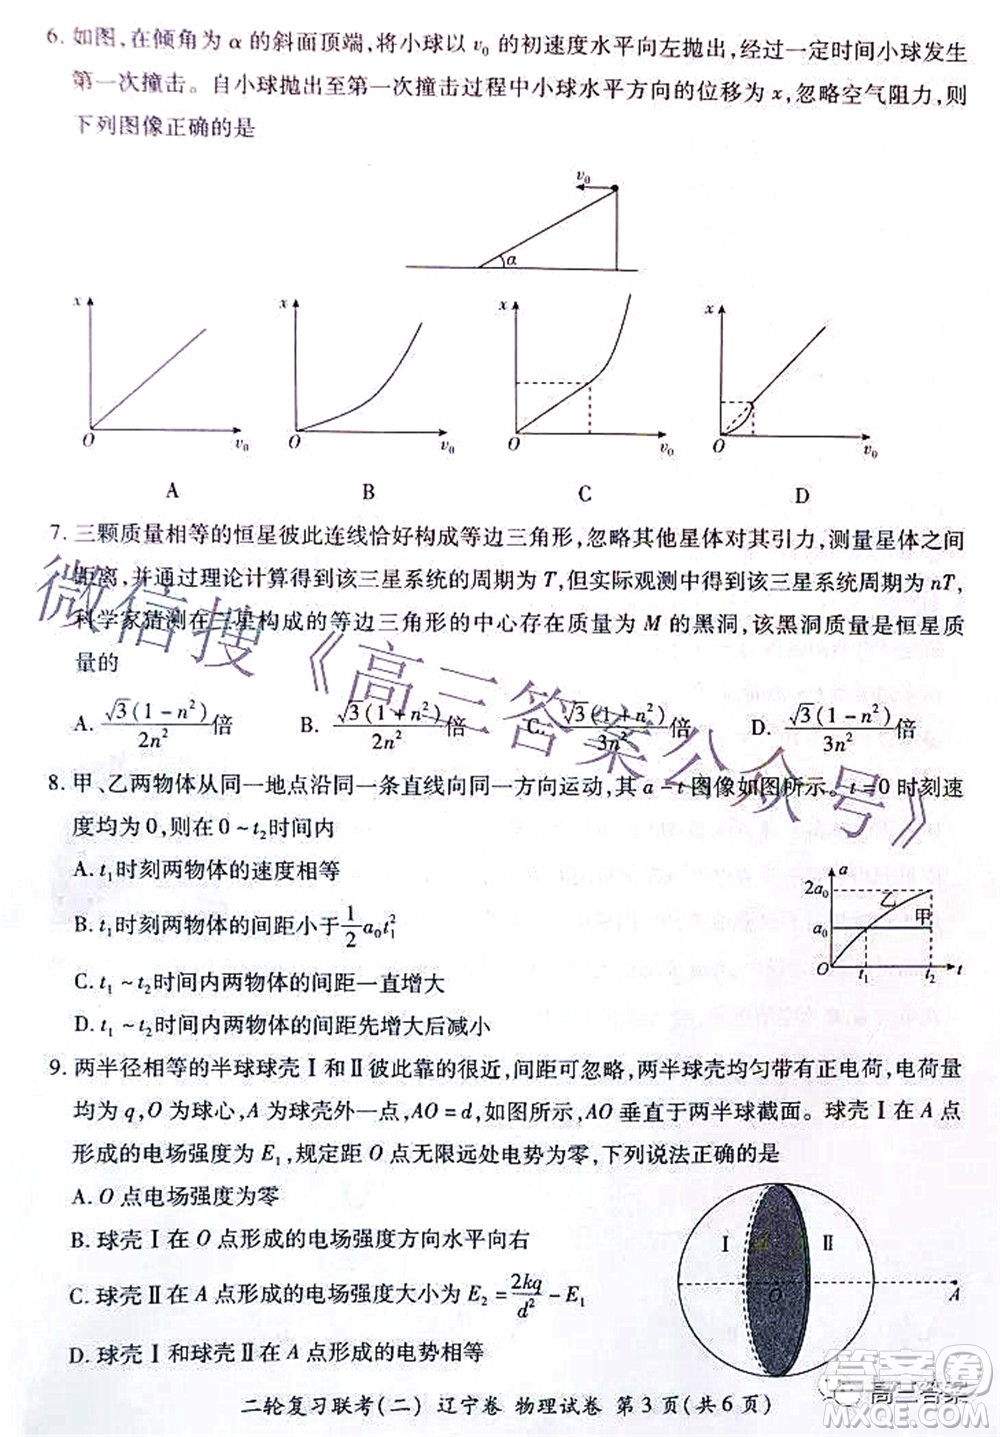 6. 如图,在倾角为 α 的斜面顶端,将小球以 v₀ 的初速度水平向左抛出,经过一定时间小球发生
第一次撞击。自小球抛出至第一次撞击过程中小球水平方向的位移为 x,忽略空气阻力,则
下列图像正确的是
v₀
α
x
O
v₀
x
O
v₀
x
O
v₀
x
O
v₀
A
B
C
D
7. 三颗质量相等的恒星彼此连线恰好构成等边三角形,忽略其他星体对其引力,测量星体之间
距离,并通过理论计算得到该三星系统的周期为 T,但实际观测中得到该三星系统周期为 nT,
科学家猜测在三星构成的等边三角形的中心存在质量为 M 的黑洞,该黑洞质量是恒星质
量的
A. √3(1-n²)/2n² 倍 B. √3(1+n²)/2n² 倍 C. √3(1+n²)/3n² 倍 D. √3(1-n²)/3n² 倍
8. 甲、乙两物体从同一地点沿同一条直线向同一方向运动,其 a-t 图像如图所示。t=0 时刻速
度均为 0,则在 0~t₂ 时间内
A. t₁ 时刻两物体的速度相等
B. t₁ 时刻两物体的间距小于 1/2 a₀t₁²
C. t₁~t₂ 时间内两物体的间距一直增大
D. t₁~t₂ 时间内两物体的间距先增大后减小
a
2a₀
乙
甲
a₀
O
t₁
t₂
t
9. 两半径相等的半球球壳Ⅰ和Ⅱ彼此靠的很近,间距可忽略,两半球壳均匀带有正电荷,电荷量
均为 q,O 为球心,A 为球壳外一点,AO=d,如图所示,AO 垂直于两半球截面。球壳Ⅰ在 A 点
形成的电场强度为 E₁,规定距 O 点无限远处电势为零,下列说法正确的是
A. O 点电场强度为零
B. 球壳Ⅰ在 O 点形成的电场强度方向水平向右
C. 球壳Ⅱ在 A 点形成的电场强度大小为 E₂=2kq/d²-E₁
D. 球壳Ⅰ和球壳Ⅱ在A点形成的电势相等
Ⅰ
Ⅱ
O
A
二轮复习联考(二) 辽宁卷 物理试卷 第 3 页(共 6 页)
微信搜《高三答案公众号》
答案圈
高三答案